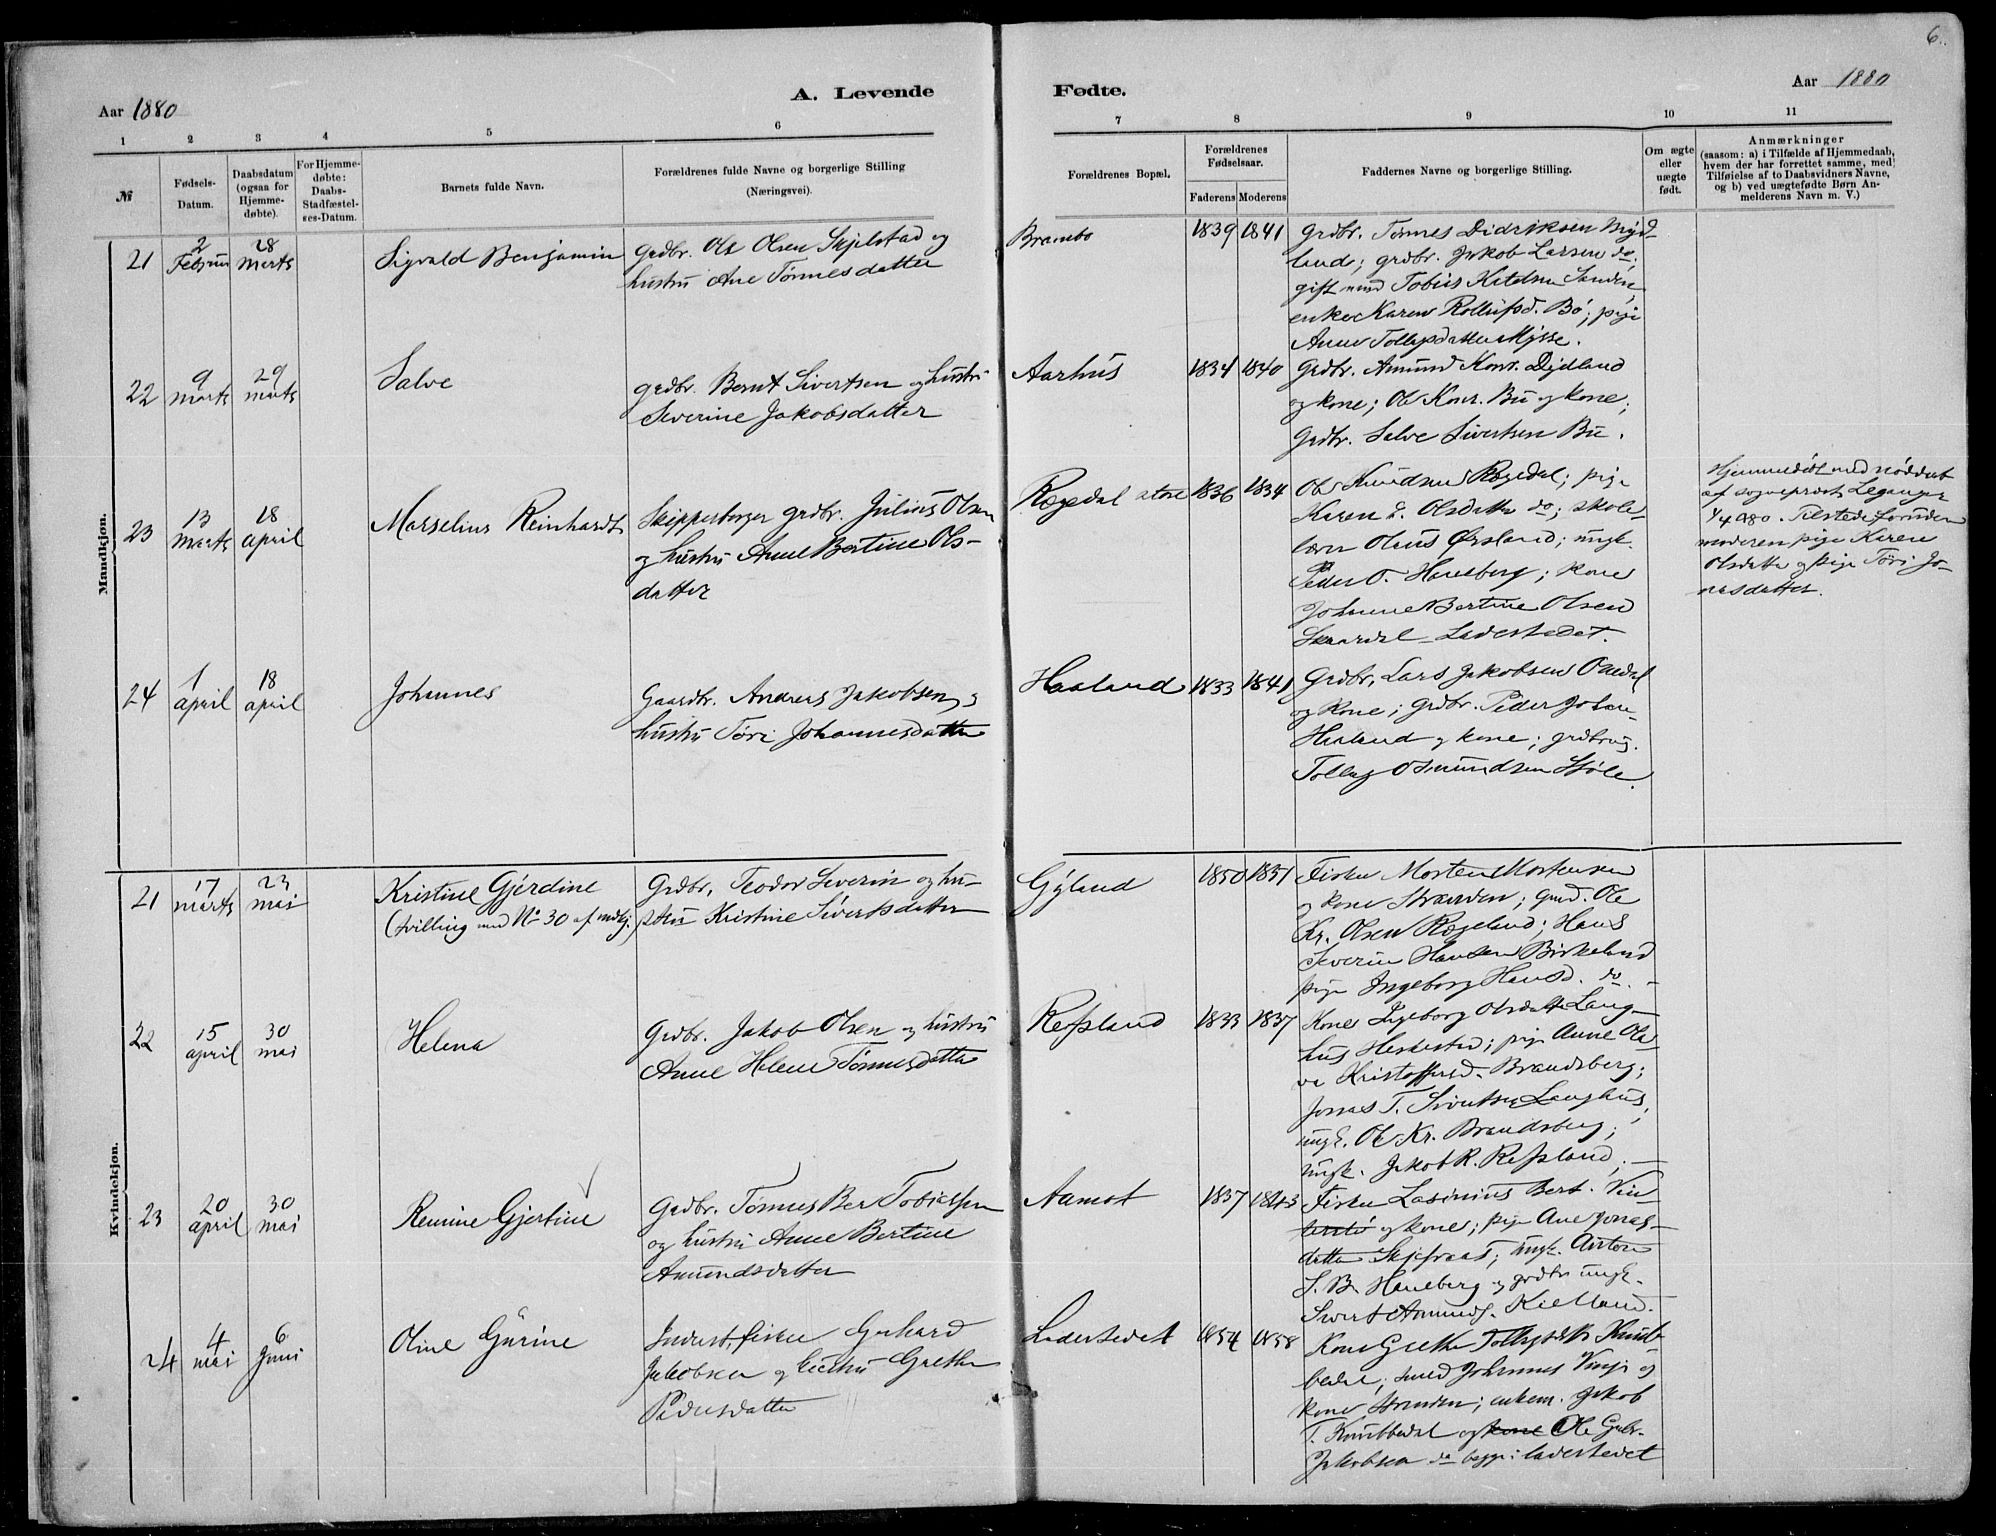 6.
Aar 1880
A. Levende
Fødte.
Aar 1880
1 2 3 4 5 6
7 8 9 10 11
№
Fødsels-
Datum.
Daabsdatum
(ogsaa for
Hjemme-
døbte).
For Hjemme-
døbte:
Daabs-
Stadfæstel-
ses-Datum.
Barnets fulde Navn.
Forældrenes fulde Navne og borgerlige Stilling
(Næringsvei).
Forældrenes Bopæl.
Forældrenes
Fødselsaar.
Faderens Moderens
Faddernes Navne og borgerlige Stilling.
Om ægte
eller
uægte
født.
Anmærkninger
(saasom: a) i Tilfælde af Hjemmedaab,
hvem der har forrettet samme, med
Tilføielse af to Daabsvidners Navne,
og b) ved uægtefødte Børn An-
melderens Navn m. V.)
Mandkjøn.
21
2
Februar
28
Marts
Sigvald Benjamin
Grdbr. Ole Olsen Skjelstad og
hustru Ane Tønnesdatter
Brambo
1839 1841
Grdbr. Tønnes Didriksen
land; grdbr. Jakob Larsen do;
gift mand Tobias Sanden,
enke Karen Bø; pige
Anne
22
9
marts
29
marts
Salve
grdbr. Bernt Sivertsen og hustru
Severine Jakobsdatter
Aarhus
1834 1840
Grdbr. Amund Konr. Dydland
og kone; Ole Konr. Bu og kone;
Grdbr. Salve Sivertsen Bu.
23
13
Marts
18
april
Marselius Reinhardt
Skipperborger grdbr. Julius Olsen
og hustru Anne Bertine Ols-
datter
Rægedal store
1836 1834
Ole Knudsen Rægedal; pige
Karen L. Olsdatter do; skole-
lærer Olaus Ørsland; ungk.
Peder O. Haneberg; kone
Johanne Bertine Olsen
Skaardal Ladestedet.
Hjemmedøbt med nøddaab
af sogneprest Leganger
1/4 80. Tilstede foruden
moderen pige Karen
Olsdatter og pige Tøri Jo-
nasdatter.
24
1
april
18
april
Johannes
Gaardbr. Andreas Jakobsen og
hustru Tøri Johannesdatter
Haaland
1833 1841
Grdbr. Lars Jakobsen Omdal
og kone; grdbr. Peder Johan-
Haaland og kone; grdbrug.
Tollag Osmundsen
Kvindekjøn.
21
17
marts
23
mai
Kristine Gjerdine
(tvilling med No 30 af mdkj.)
Grdbr. Teodor Severin og hu-
stru Kristine Sivertsdatter
Gyland
1850 1851
Fisker Morten Mortensen
og kone Stranden; grd. Ole
Kr. Olsen Rægeland; Hans
Severin Hansen Birkeland
pige Ingeborg Hansd. do.
22
15
april
30
mai
Helena
Grdbr. Jakob Olsen og hustru
Anne Helene Tønnesdatter
Refsland
1833 1837
Kone Ingeborg Olsdatter Lang-
hus Heskestad; pige Anne Ola-
va Kristoffersd. Brandsberg;
Jonas T. Sivertsen Langhus,
ungk. Ole Kr. Brandsberg;
ungk. Jakob R. Refsland.
23
20
april
30
mai
Remine Gjertine
Grdbr. Tønnes Ber Tobiassen
og hustru Anne Bertine
Amundsdatter
Aamot
1837 1843
Fisker Lasinius Bert.
og kone; pige Ane Jonas-
datter Skjefraas; ungk. Anton
S. B. Haneberg og grdbr ungk.
Sivert Amunds. Kielland.
24
4
mai
6
Juni
Oline Gurine
Indust. fisker Gerhard
Jakobsen og hustru Grethe
Pedersdatter
Ladestedet
1854 1858
Kone Grethe
smed Johannes og
kone Stranden; enkem. Jakob
T. og kone Ole Gabr.
Jakobsen do begge i ladestedet